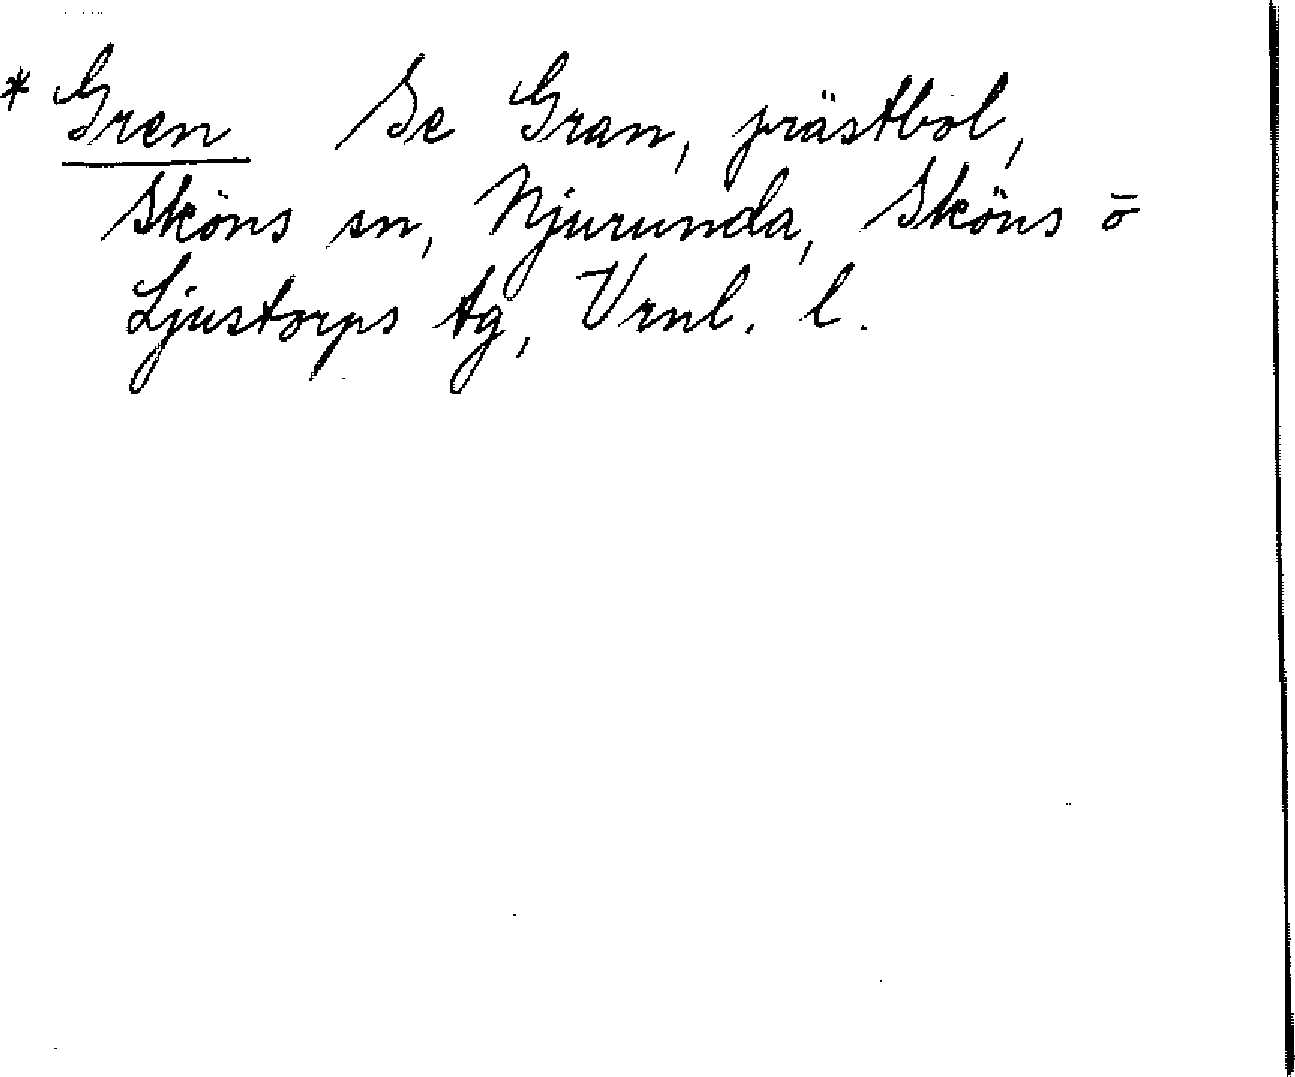 * Gren Se Gran, prästbol,
Sköns sn, Njurunda, Sköns o̅
Ljustorps tg, Vrnl. l.